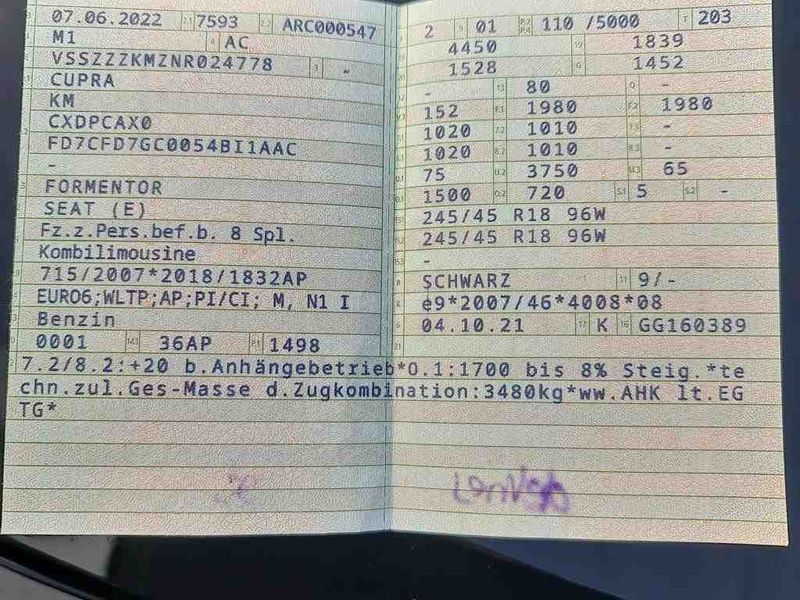 07.06.2022 2.1 7593 2.2 ARC000547
M1 4 AC
VSSZZZKMZNR024778 3 -
CUPRA
KM
CXDPCAX0
FD7CFD7GC0054BI1AAC
-
FORMENTOR
SEAT (E)
Fz.z.Pers.bef.b. 8 Spl.
Kombilimousine
715/2007*2018/1832AP
EURO6;WLTP;AP;PI/CI; M, N1 I
Benzin
0001 14.1 36AP P.1 1498
2 9 01 P.2 P.4 110 /5000 T 203
4450 19 1839
1528 G 1452
- 13 80 Q -
152 F.1 1980 F.2 1980
1020 7.2 1010 7.3 -
1020 8.2 1010 8.3 -
75 U.2 3750 U.3 65
1500 O.2 720 S.1 5 S.2 -
245/45 R18 96W
245/45 R18 96W
-
SCHWARZ 11 9/-
K e9*2007/46*4008*08
6 04.10.21 17 K 16 GG160389
21
7.2/8.2:+20 b.Anhängebetrieb*O.1:1700 bis 8% Steig.*te
chn.zul.Ges-Masse d.Zugkombination:3480kg*ww.AHK lt.EG
TG*